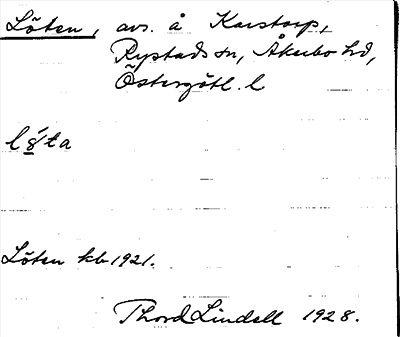 Löten, avs. å Karstorp,
Rystads sn, Åkerbo hd,
Östergötl. l
lö́ta
Löten kb 1921.
Thord Lindell 1928.